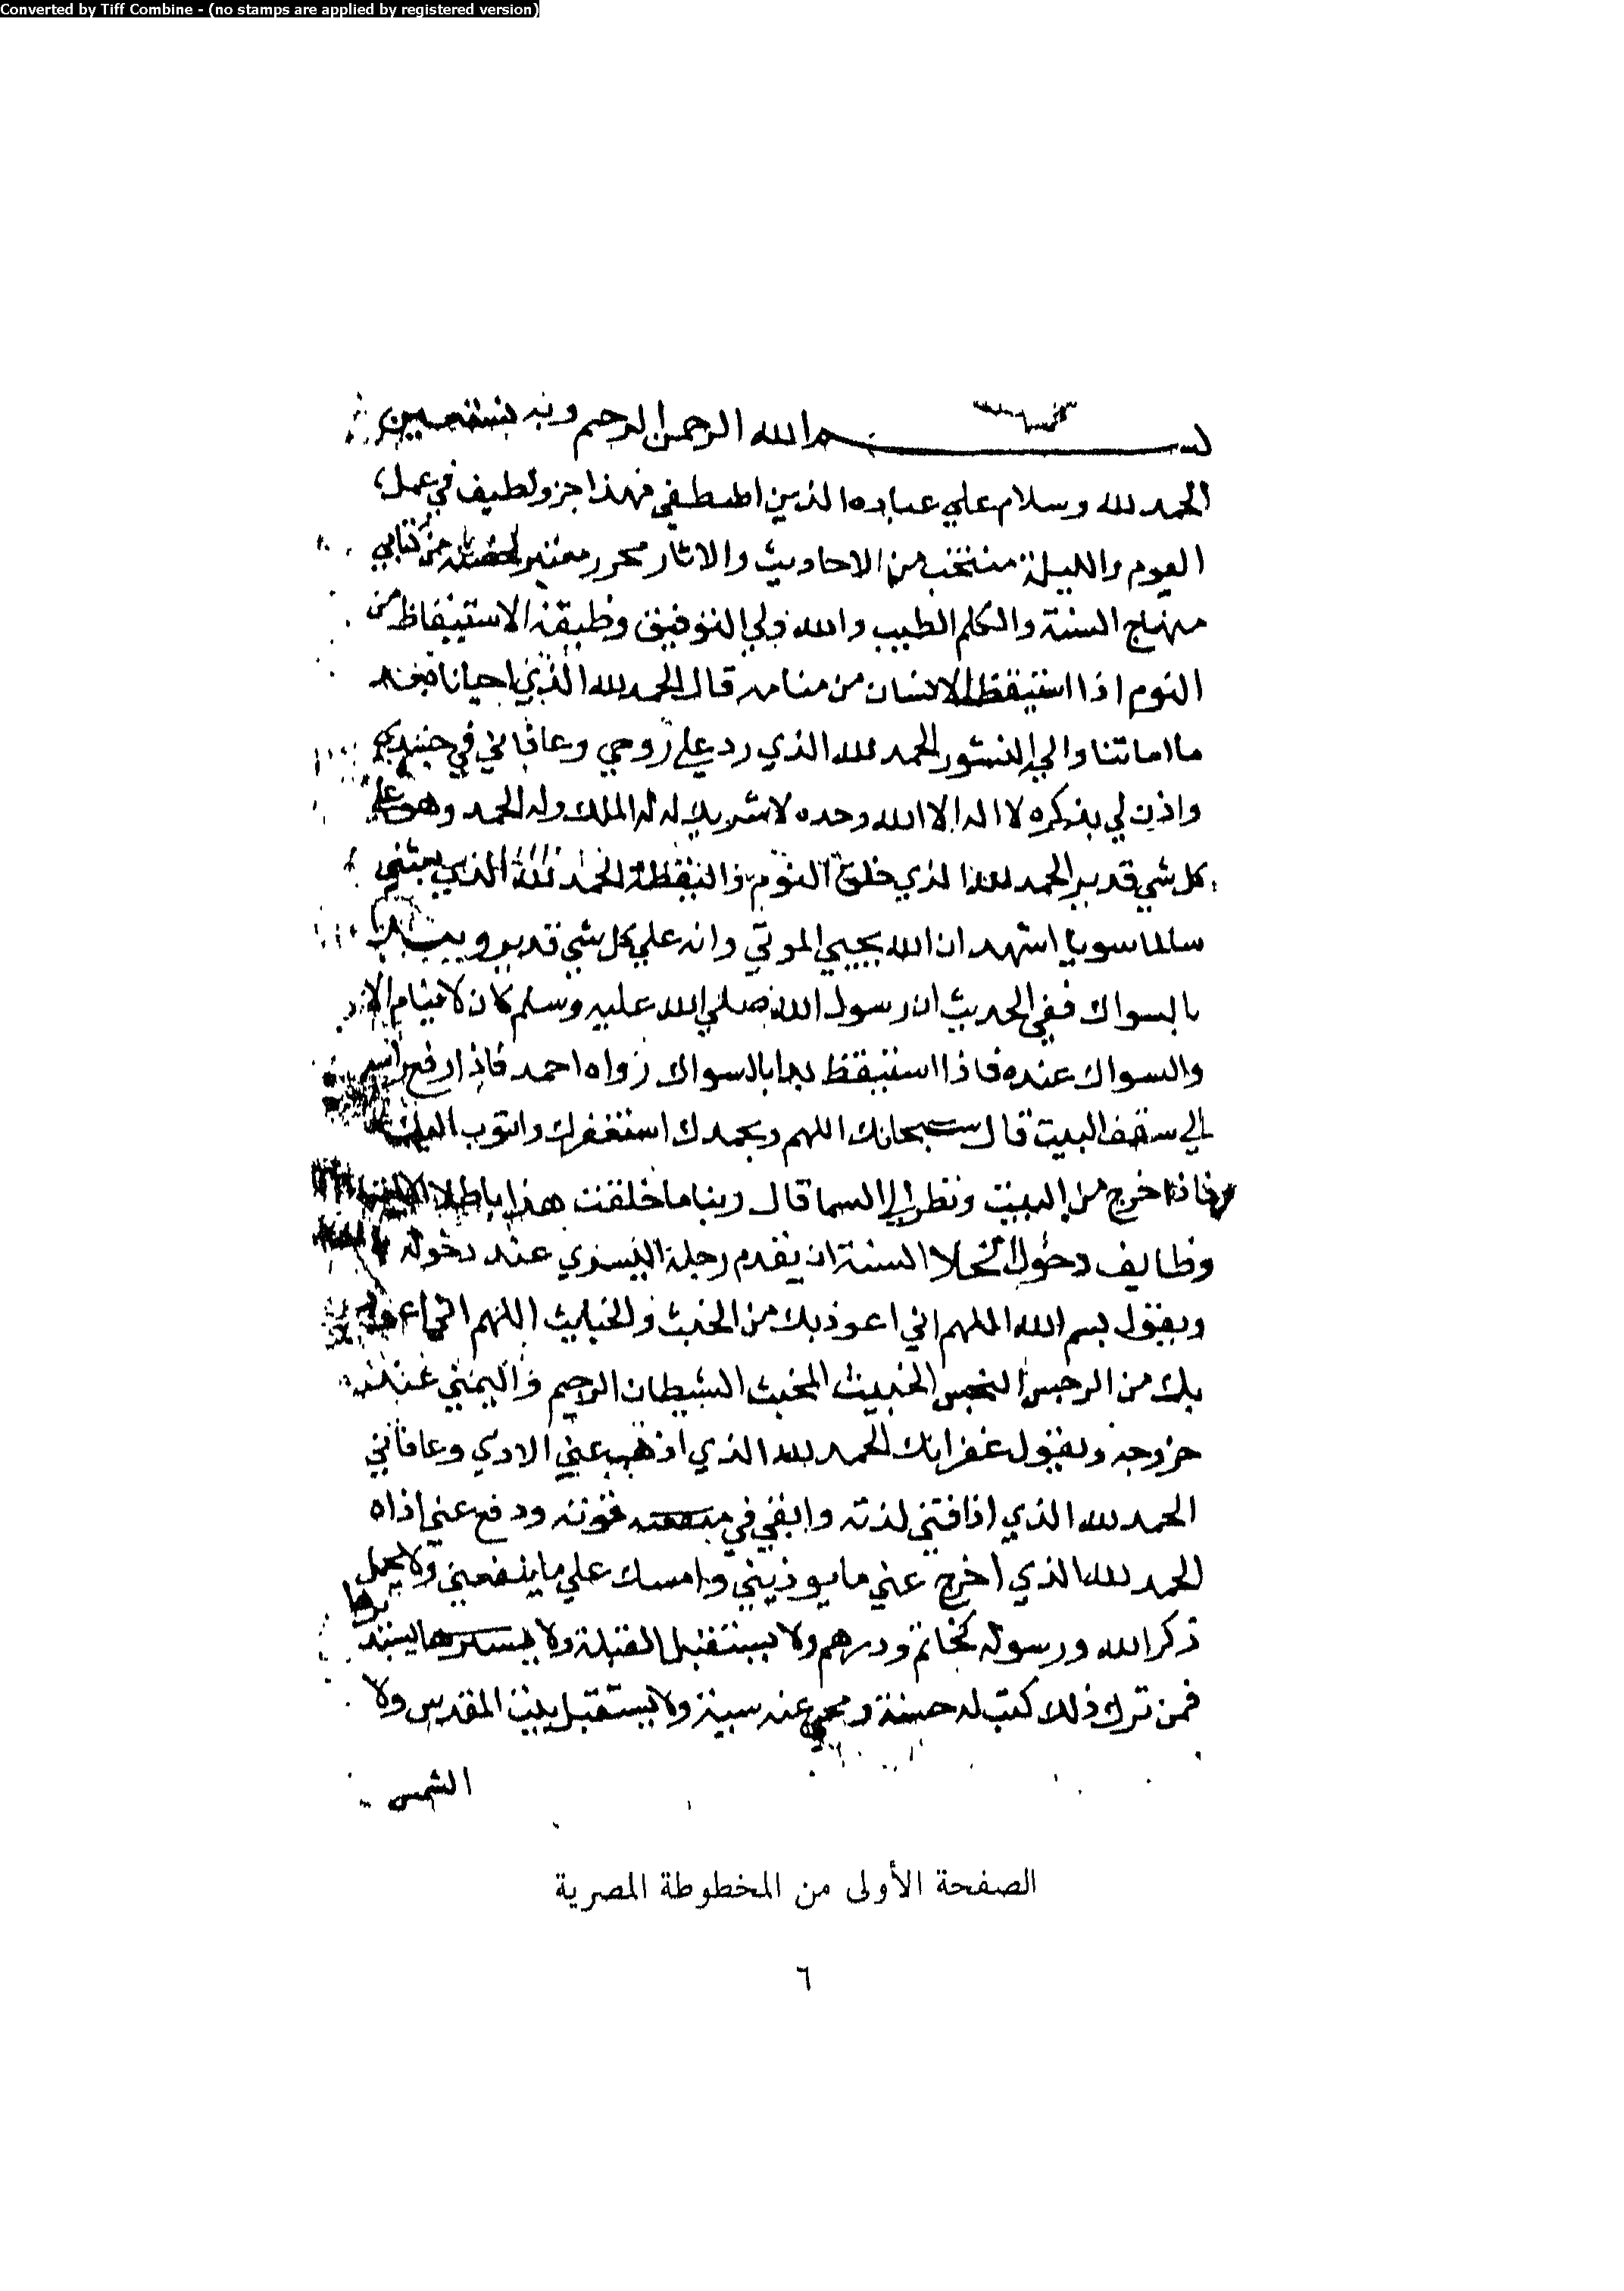 Converted by Tiff Combine - (no stamps are applied by registered version)
بسم الله الرحمن الرحيم وبه نستعين
الحمد لله وسلام علي عباده الذين اصطفي فهذا جزو لطيف في عمل
اليوم والليلة منتخب من الاحاديث والاثار محرر معتبر لخصته من كتابي
منهاج السنة والكلم الطيب والله ولي التوفيق وظيفة الاستيقاظ من
النوم اذا استيقظ الانسان من منامه قال الحمد لله الذي احيانا بعد
ما اماتنا والي النشور الحمد لله الذي رد علي روحي وعافاني في جسدي
واذن لي بذكره لا اله الا الله وحده لا شريك له له الملك وله الحمد وهو علي
كل شي قدير الحمد لله الذي خلق النوم واليقظة الحمد لله الذي بعثني
سالما سويا اشهد ان الله يحيي الموتي وانه علي كل شي قدير
بالسواك ففي الحديث ان رسول الله صلي الله عليه وسلم كان لا ينام الا
والسواك عنده فاذا استيقظ بدا بالسواك رواه احمد فاذا رفع راسه
الي سقف البيت قال سبحانك اللهم وبحمدك استغفرك واتوب اليك
فاذا خرج من البيت ونظر الي السما قال ربنا ما خلقت هذا باطلا
وظايف دخول الخلا السنة ان يقدم رجله اليسري عند دخوله
ويقول بسم الله اللهم اني اعوذ بك من الخبث والخبايث اللهم اني اعوذ
بك من الرجس النجس الخبيث المخبث الشيطان الرجيم واليمني عند
خروجه ويقول غفرانك الحمد لله الذي اذهب عني الاذي وعافاني
الحمد لله الذي اذاقني لذته وابقي في منفعته قوته ودفع عني اذاه
الحمد لله الذي اخرج عني ما يوذيني وامسك علي ما ينفعني ولا يحمل
ذكر الله ورسوله كخاتم ودرهم ولا يستقبل القبلة ولا يستدبرها
فمن ترك ذلك كتب له حسنة ومحي عنه سيئة ولا يستقبل بيت المقدس ولا
الشمس
الصفحة الأولى من المخطوطة المصرية
٦